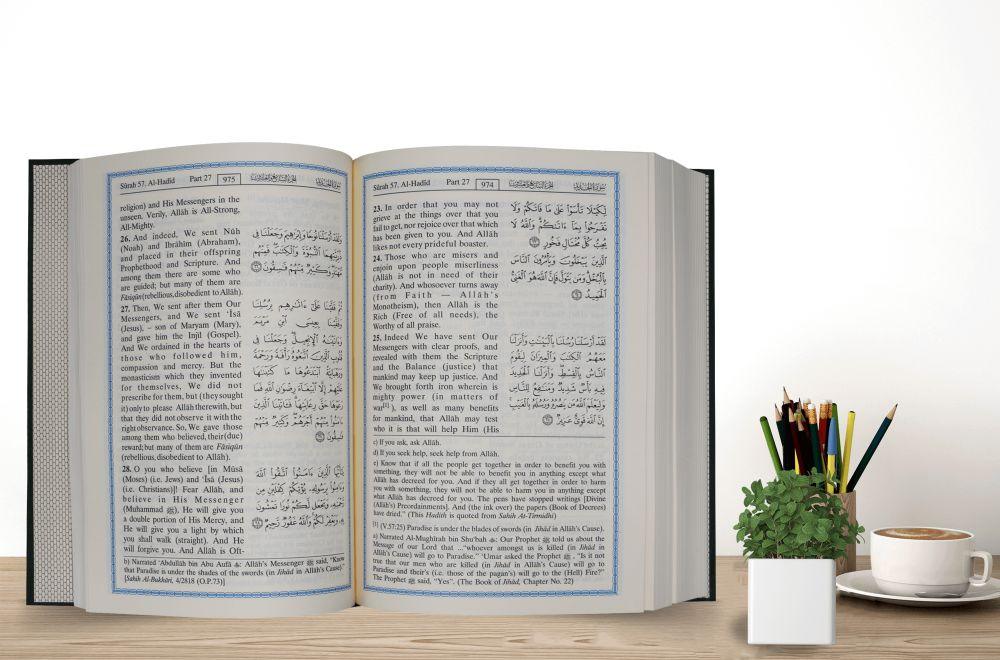 Sûrah 57. Al-Hadîd Part 27 974 الجزء السابع والعشرون سورة الحديد
23. In order that you may not
grieve at the things over that you
fail to get, nor rejoice over that which
has been given to you. And Allâh
likes not every prideful boaster.
24. Those who are misers and
enjoin upon people miserliness
(Allâh is not in need of their
charity). And whosoever turns away
(from Faith — Allâh's
Monotheism), then Allâh is the
Rich (Free of all needs), the
Worthy of all praise.
25. Indeed We have sent Our
Messengers with clear proofs, and
revealed with them the Scripture
and the Balance (justice) that
mankind may keep up justice. And
We brought forth iron wherein is
mighty power (in matters of
war[1]), as well as many benefits
for mankind, that Allâh may test
who it is that will help Him (His
لِّكَيْلَا تَأْسَوْا۟ عَلَىٰ مَا فَاتَكُمْ وَلَا
تَفْرَحُوا۟ بِمَآ ءَاتَىٰكُمْ وَٱللَّهُ لَا
يُحِبُّ كُلَّ مُخْتَالٍ فَخُورٍ ٢٣
ٱلَّذِينَ يَبْخَلُونَ وَيَأْمُرُونَ ٱلنَّاسَ
بِٱلْبُخْلِ وَمَن يَتَوَلَّ فَإِنَّ ٱللَّهَ هُوَ ٱلْغَنِىُّ
ٱلْحَمِيدُ ٢٤
لَقَدْ أَرْسَلْنَا رُسُلَنَا بِٱلْبَيِّنَٰتِ وَأَنزَلْنَا
مَعَهُمُ ٱلْكِتَٰبَ وَٱلْمِيزَانَ لِيَقُومَ
ٱلنَّاسُ بِٱلْقِسْطِ وَأَنزَلْنَا ٱلْحَدِيدَ
فِيهِ بَأْسٌ شَدِيدٌ وَمَنَٰفِعُ لِلنَّاسِ
وَلِيَعْلَمَ ٱللَّهُ مَن يَنصُرُهُۥ وَرُسُلَهُۥ بِٱلْغَيْبِ
إِنَّ ٱللَّهَ قَوِىٌّ عَزِيزٌ ٢٥
c) If you ask, ask Allâh.
d) If you seek help, seek help from Allâh.
e) Know that if all the people get together in order to benefit you with
something, they will not be able to benefit you in anything except what
Allâh has decreed for you. And if they all get together in order to harm
you with something, they will not be able to harm you in anything except
what Allâh has decreed for you. The pens have stopped writings [Divine
(Allâh's) Preordainments]. And (the ink over) the papers (Book of Decrees)
have dried." (This Hadith is quoted from Sahih At-Tirmidhi)
[1] (V.57:25) Paradise is under the blades of swords (in Jihâd in Allâh's Cause).
a) Narrated Al-Mughîrah bin Shu'bah رضي الله عنه: Our Prophet ﷺ told us about the
Message of our Lord that ..."whoever amongst us is killed (in Jihâd in
Allâh's Cause) will go to Paradise." 'Umar asked the Prophet ﷺ, "Is it not
true that our men who are killed (in Jihâd in Allâh's Cause) will go to
Paradise and their's (i.e. those of the pagan's) will go to the (Hell) Fire?"
The Prophet ﷺ said, "Yes". (The Book of Jihâd, Chapter No. 22)
Sûrah 57. Al-Hadîd Part 27 975 الجزء السابع والعشرون سورة الحديد
religion) and His Messengers in the
unseen. Verily, Allâh is All-Strong,
All-Mighty.
26. And indeed, We sent Nûh
(Noah) and Ibrâhîm (Abraham),
and placed in their offspring
Prophethood and Scripture. And
among them there are some who
are guided; but many of them are
Fâsiqûn (rebellious, disobedient to Allâh).
27. Then, We sent after them Our
Messengers, and We sent 'Îsâ
(Jesus), – son of Maryam (Mary),
and gave him the Injîl (Gospel).
And We ordained in the hearts of
those who followed him,
compassion and mercy. But the
monasticism which they invented
for themselves, We did not
prescribe for them, but (they sought
it) only to please Allâh therewith, but
that they did not observe it with the
right observance. So, We gave those
among them who believed, their (due)
reward; but many of them are Fâsiqûn
(rebellious, disobedient to Allâh).
28. O you who believe [in Mûsâ
(Moses) (i.e. Jews) and 'Îsâ (Jesus)
(i.e. Christians)]! Fear Allâh, and
believe in His Messenger
(Muhammad ﷺ), He will give you
a double portion of His Mercy, and
He will give you a light by which
you shall walk (straight). And He
will forgive you. And Allâh is Oft-
وَلَقَدْ أَرْسَلْنَا نُوحًا وَإِبْرَٰهِيمَ وَجَعَلْنَا فِى
ذُرِّيَّتِهِمَا ٱلنُّبُوَّةَ وَٱلْكِتَٰبَ فَمِنْهُم
مُّهْتَدٍ وَكَثِيرٌ مِّنْهُمْ فَٰسِقُونَ ٢٦
ثُمَّ قَفَّيْنَا عَلَىٰٓ ءَاثَٰرِهِم بِرُسُلِنَا
وَقَفَّيْنَا بِعِيسَى ٱبْنِ مَرْيَمَ
وَءَاتَيْنَٰهُ ٱلْإِنجِيلَ وَجَعَلْنَا فِى
قُلُوبِ ٱلَّذِينَ ٱتَّبَعُوهُ رَأْفَةً وَرَحْمَةً
وَرَهْبَانِيَّةً ٱبْتَدَعُوهَا مَا كَتَبْنَٰهَا
عَلَيْهِمْ إِلَّا ٱبْتِغَآءَ رِضْوَٰنِ ٱللَّهِ فَمَا
رَعَوْهَا حَقَّ رِعَايَتِهَا فَـَٔاتَيْنَا ٱلَّذِينَ
ءَامَنُوا۟ مِنْهُمْ أَجْرَهُمْ وَكَثِيرٌ مِّنْهُمْ
فَٰسِقُونَ ٢٧
يَٰٓأَيُّهَا ٱلَّذِينَ ءَامَنُوا۟ ٱتَّقُوا۟ ٱللَّهَ
وَءَامِنُوا۟ بِرَسُولِهِۦ يُؤْتِكُمْ كِفْلَيْنِ مِن
رَّحْمَتِهِۦ وَيَجْعَل لَّكُمْ نُورًا تَمْشُونَ
بِهِۦ وَيَغْفِرْ لَكُمْ وَٱللَّهُ غَفُورٌ رَّحِيمٌ ٢٨
b) Narrated 'Abdullâh bin Abu Aufâ رضي الله عنه: Allâh's Messenger ﷺ said, "Know
that Paradise is under the shades of the swords (in Jihâd in Allâh's Cause)."
[Sahih Al-Bukhâri, 4/2818 (O.P.73)]